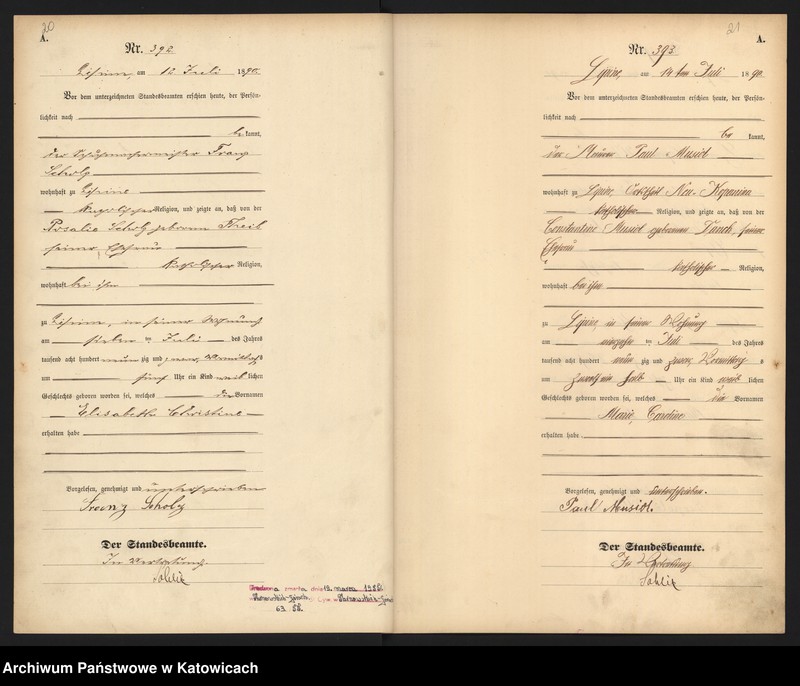 20
A.
Nr. 392
am 12 Juli 1890
Vor dem unterzeichneten Standesbeamten erschien heute, der Persön-
lichkeit nach
be kannt,
der Schuhmachermeister Franz
Scholz
wohnhaft zu
katholischer Religion, und zeigte an, daß von der
Rosalie Scholz geborenen Theil
seiner Ehefrau
katholischer Religion,
wohnhaft bei ihm
zu in seiner Wohnung
am sieben ten Juli des Jahres
tausend acht hundert neun zig und zwar Vormittags
um fünf Uhr ein Kind weib lichen
Geschlechts geboren worden sei, welches die Vornamen
Elisabeth Christine
erhalten habe
Vorgelesen, genehmigt und unterschrieben
Franz Scholz
Der Standesbeamte.
In Vertretung.
19. marca 1958
63. 58.
21
A.
Nr. 393
Lipine, am 14 ten Juli 1890.
Vor dem unterzeichneten Standesbeamten erschien heute, der Persön-
lichkeit nach
be kannt,
der Maurer Paul Musiol
wohnhaft zu Lipine,
katholischer Religion, und zeigte an, daß von der
Constantine Musiol geborenen seiner
Ehefrau
katholischer Religion,
wohnhaft bei ihm
zu Lipine in seiner Wohnung
am ten Juli des Jahres
tausend acht hundert neun zig und zwar Vormittag s
um zwölf ein halb Uhr ein Kind weib lichen
Geschlechts geboren worden sei, welches die Vornamen
Marie,
erhalten habe
Vorgelesen, genehmigt und unterschrieben.
Paul Musiol.
Der Standesbeamte.
In Vertretung
Archiwum Państwowe w Katowicach